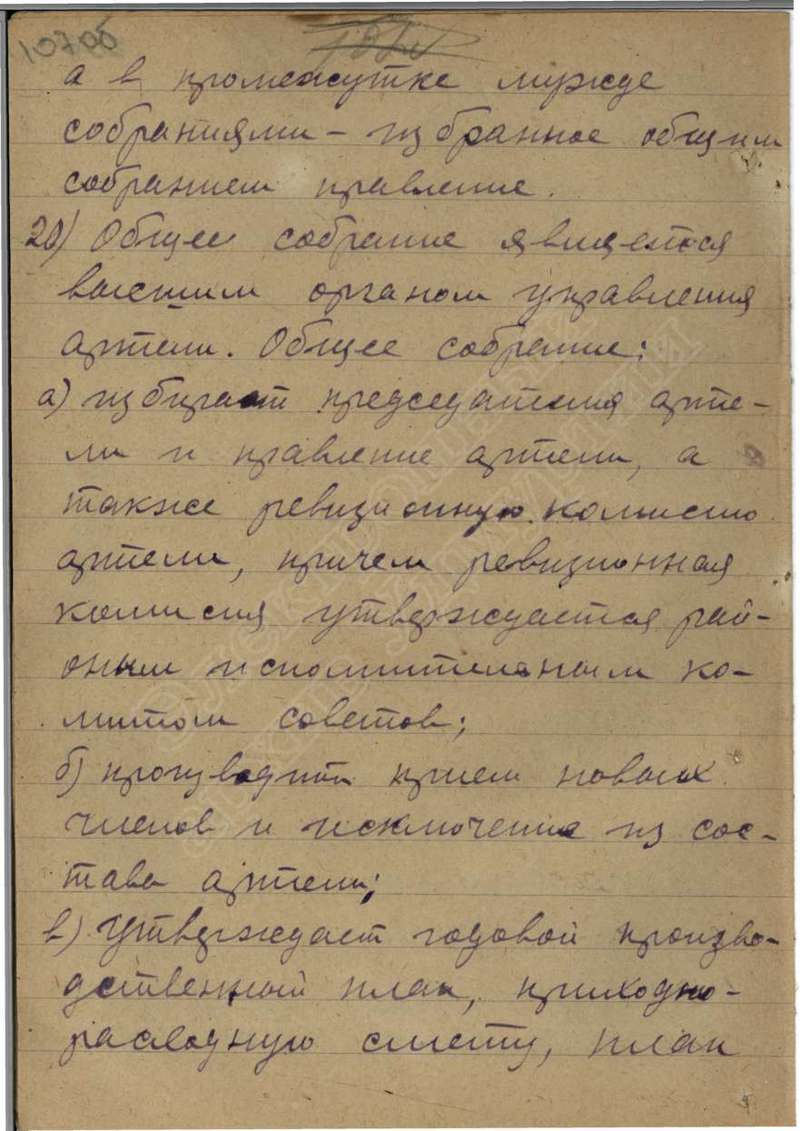 107об
а в промежутке между
собраниями – избранное общим
собранием правление.
20) Общее собрание является
высшим органом управления
артели. Общее собрание:
а) избирает председателя арте-
ли и правление артели, а
также ревизионную комиссию
артели, причем ревизионная
комиссия утверждается рай-
онным исполнительным ко-
митетом советов;
б) производит прием новых
членов и исключение из сос-
тава артели;
в) утверждает годовой произво-
дственный план, приходно-
расходную смету, план